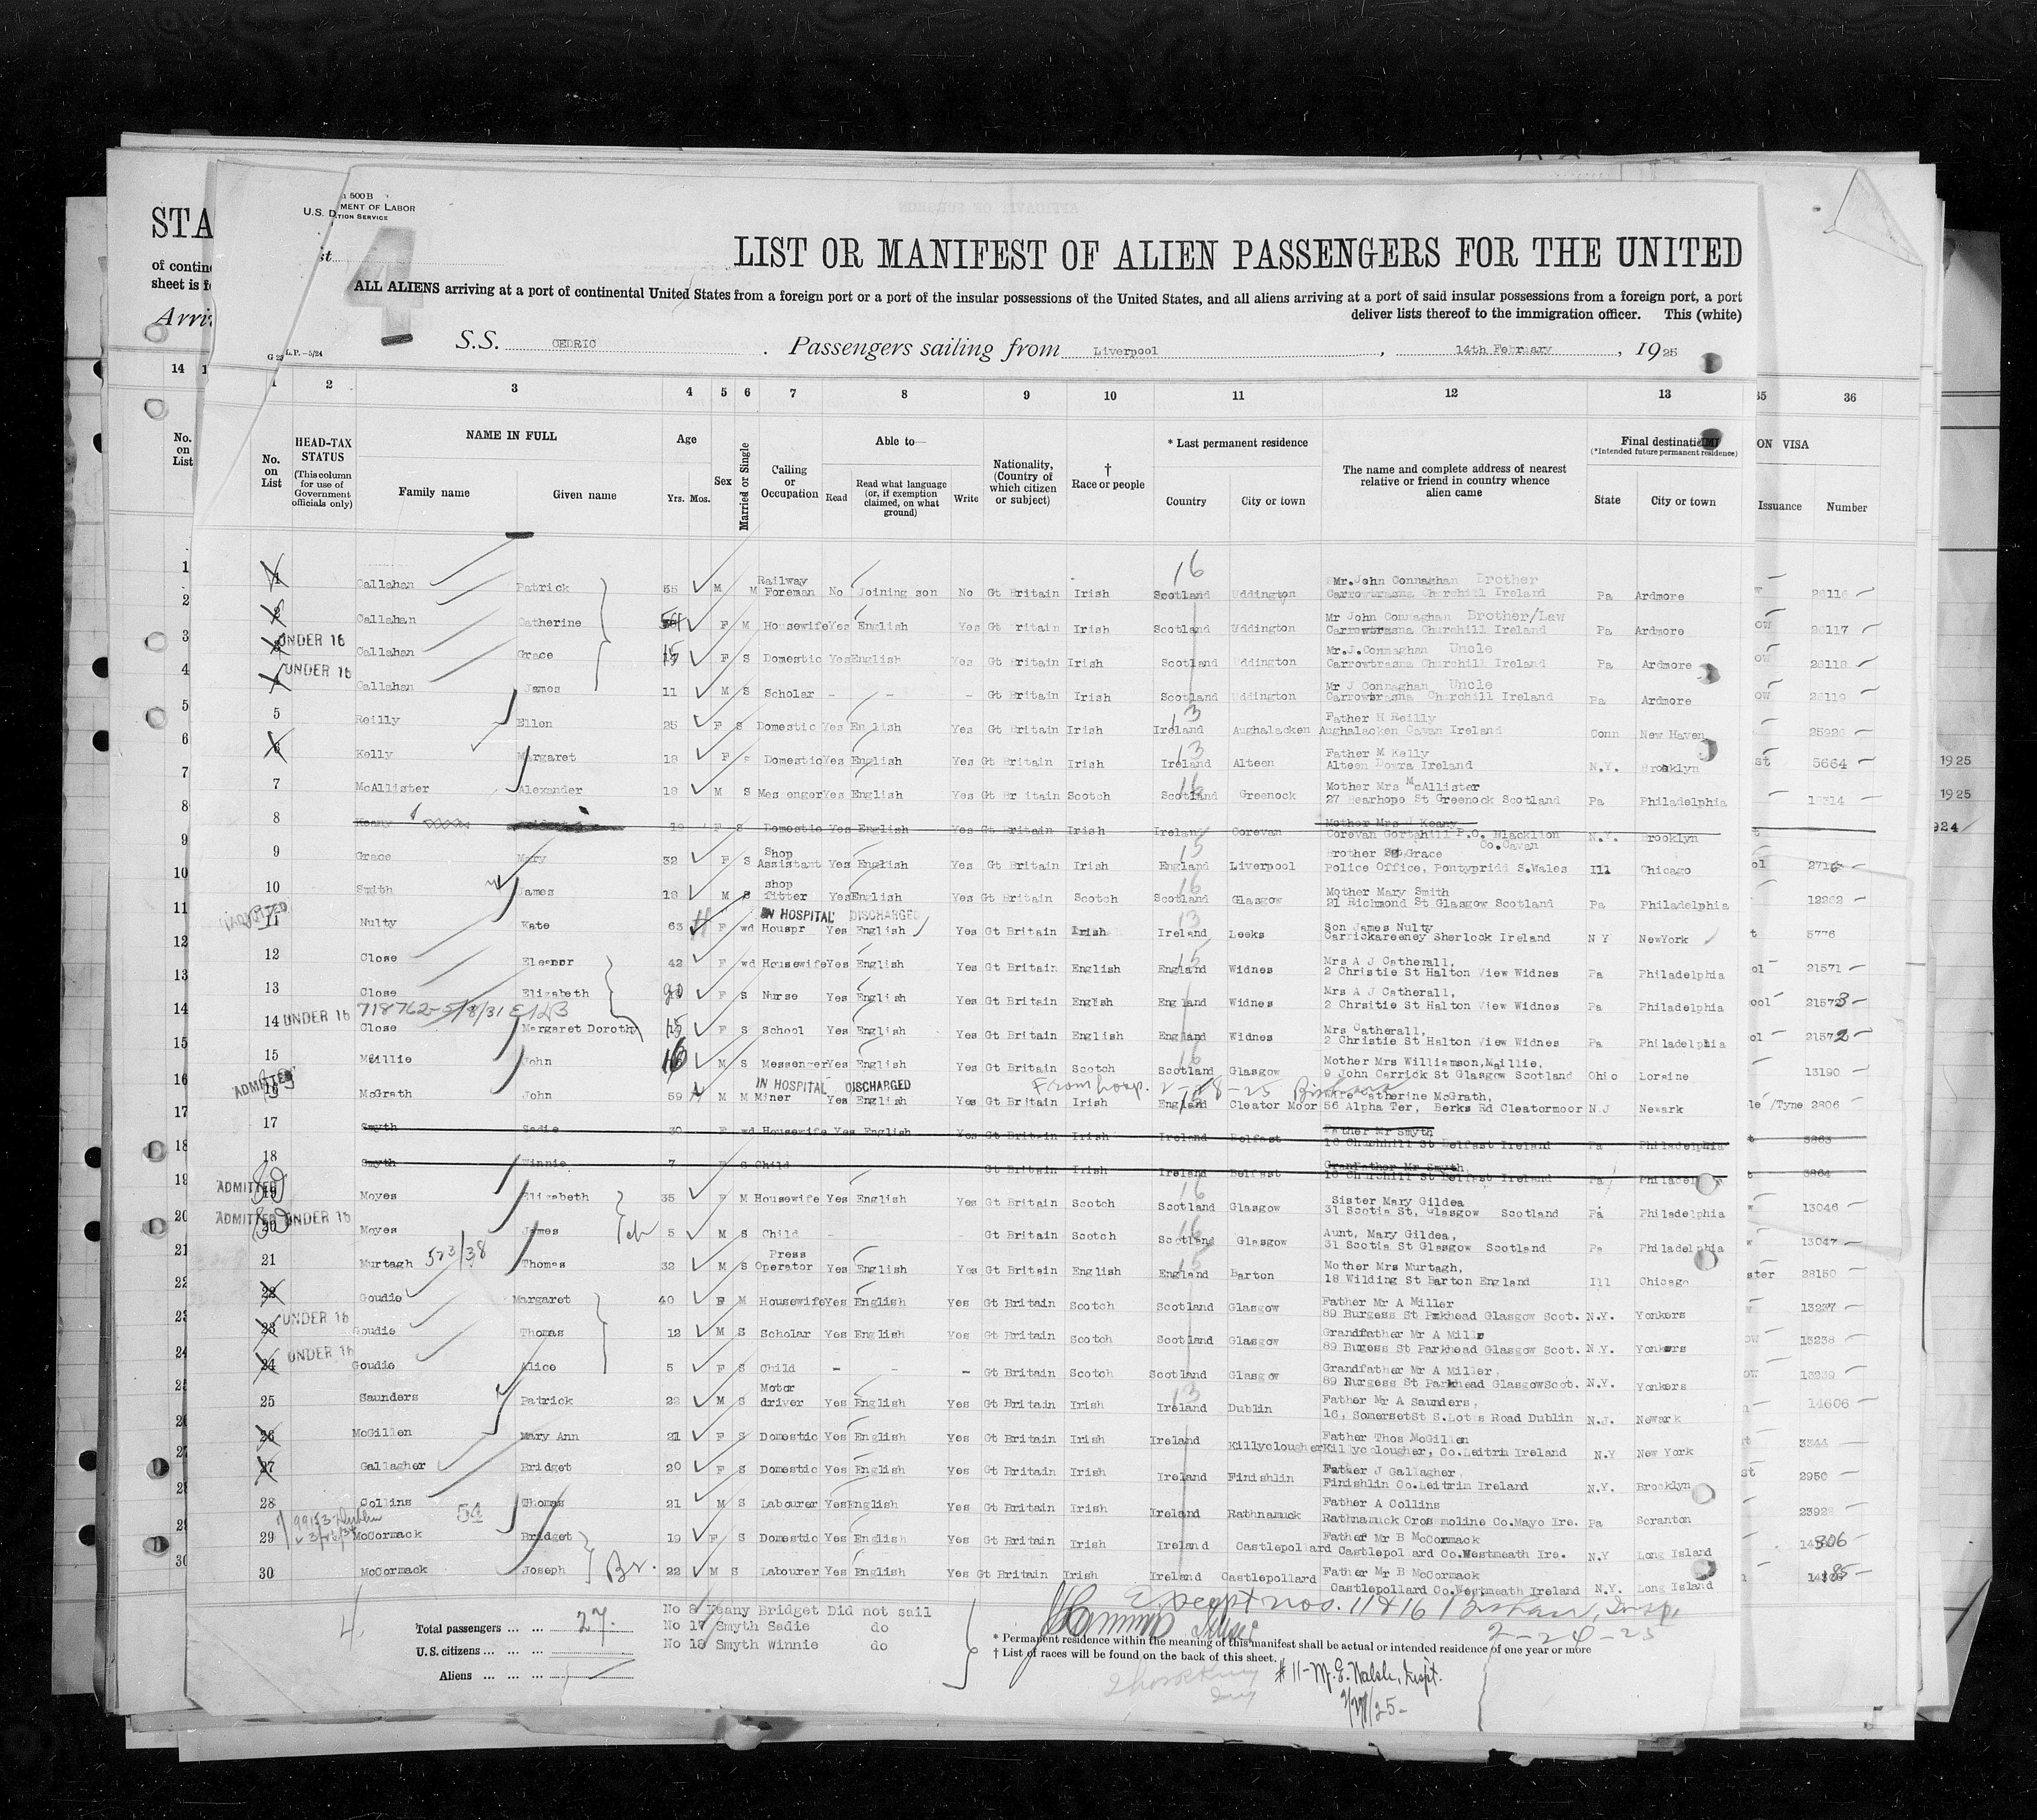 STA
of contin
sheet is f
Arri
500 B
MENT OF LABOR
U.S. D
TION SERVICE
st
4
LIST OR MANIFEST OF ALIEN PASSENGERS FOR THE UNITED
ALL ALIENS arriving at a port of continental United States from a foreign port or a port of the insular possessions of the United States, and all aliens arriving at a port of said insular possessions from a foreign port, a port
deliver lists thereof to the immigration officer. This (white)
L.P.—5/24
S.S. CEDRIC. Passengers sailing from Liverpool, 14th February, 1925
14 1 2 3 4 5 6 7 8 9 10 11 12 13 35 36
No. on List
No. on List
HEAD-TAX STATUS (This column for use of Government officials only)
NAME IN FULL
Family name Given name
Age
Yrs. Mos.
Sex
Married or Single
Calling or Occupation
Able to—
Read Read what language (or, if exemption claimed, on what ground) Write
Nationality, (Country of which citizen or subject)
† Race or people
* Last permanent residence
Country City or town
The name and complete address of nearest relative or friend in country whence alien came
Final destination
(*Intended future permanent residence)
State City or town
ON VISA
Issuance Number
1 Callahan Patrick 55 M M Railway Foreman No Joining son No Gt Britain Irish 16 Scotland Uddington Mr. John Connaghan Brother Carrowtrasna Churchill Ireland Pa Ardmore 26116
2 Callahan Catherine 54 F M Housewife Yes English Yes Gt Britain Irish Scotland Uddington Mr John Connaghan Brother/Law Carrowtrasna Churchill Ireland Pa Ardmore 26117
3 UNDER 16 Callahan Grace 15 F S Domestic Yes English Yes Gt Britain Irish Scotland Uddington Mr. J. Connaghan Uncle Carrowtrasna Churchill Ireland Pa Ardmore 26118
4 UNDER 16 Callahan James 11 M S Scholar - - - Gt Britain Irish Scotland Uddington Mr J Connaghan Uncle Carrowtrasna Churchill Ireland Pa Ardmore 26119
5 Reilly Ellen 25 F S Domestic Yes English Yes Gt Britain Irish 13 Ireland Aughalacken Father H Reilly Aughalacken Cavan Ireland Conn New Haven 25926
6 Kelly Margaret 18 F S Domestic Yes English Yes Gt Britain Irish 13 Ireland Alteen Father M Kelly Alteen Dowra Ireland N.Y. Brooklyn 5664
7 McAllister Alexander 18 M S Messenger Yes English Yes Gt Britain Scotch 16 Scotland Greenock Mother Mrs McAllister 27 Bearhope St Greenock Scotland Pa Philadelphia 13314
8 Keany 18 F S Domestic Yes English Yes Gt Britain Irish Ireland Corevan Mother Mrs J Keany Corevan Gortahill P.O. Blacklion Co. Cavan N.Y. Brooklyn
9 Grace Mary 32 F S Shop Assistant Yes English Yes Gt Britain Irish 15 England Liverpool Brother Sgt Grace Police Office, Pontypridd S.Wales Ill Chicago 2716
10 Smith James 18 M S shop fitter Yes English Yes Gt Britain Scotch 16 Scotland Glasgow Mother Mary Smith 21 Richmond St Glasgow Scotland Pa Philadelphia 12262
ADMITTED 11 Nulty Kate 63 H F wd IN HOSPITAL DISCHARGED Houspr Yes English Yes Gt Britain Irish 13 Ireland Leeks Son James Nulty Carrickareeney Sherlock Ireland N Y NewYork 5776
12 Close Eleanor 42 F wd Housewife Yes English Yes Gt Britain English 15 England Widnes Mrs A J Catherall, 2 Christie St Halton View Widnes Pa Philadelphia 21571
13 Close Elizabeth 20 F S Nurse Yes English Yes Gt Britain English England Widnes Mrs A J Catherall, 2 Chrsitie St Halton View Widnes Pa Philadelphia 21573
718762-5/8/31
14 UNDER 16 Close Margaret Dorothy 15 F S School Yes English Yes Gt Britain English England Widnes Mrs Catherall, 2 Christie St Halton View Widnes Pa Philadelphia 21572
15 Meillie John 16 M S Messenger Yes English Yes Gt Britain Scotch 16 Scotland Glasgow Mother Mrs Williamson, Maillie, 9 John Carrick St Glasgow Scotland Ohio Loraine 13190
ADMITTED 16 McGrath John 59 H M M IN HOSPITAL DISCHARGED Miner Yes English From hosp. 2-28-25 Yes Gt Britain Irish 15 England Cleator Moor Catherine McGrath, 56 Alpha Ter, Berks Rd Cleatormoor N.J Newark le /Tyne 2806
17 Smyth Sadie 30 F wd Housewife Yes English Yes Gt Britain Irish Ireland Belfast Father Mr Smyth 16 Churchill St Belfast Ireland Pa Philadelphia 3863
18 Smyth Winnie 7 F S Child Gt Britain Irish Ireland Belfast Grandfather Mr Smyth 16 Churchill St Belfast Ireland Pa Philadelphia 3864
ADMITTED 19 Moyes Elizabeth 35 F M Housewife Yes English Yes Gt Britain Scotch 16 Scotland Glasgow Sister Mary Gildea 31 Scotia St, Glasgow Scotland Pa Philadelphia 13046
ADMITTED UNDER 16 20 Moyes James 5 M S Child - Gt Britain Scotch 16 Scotland Glasgow Aunt, Mary Gildea, 31 Scotia St Glasgow Scotland Pa Philadelphia 13047
21 Murtagh 523/38 Thomas 32 M S Press Operator Yes English Yes Gt Britain English 15 England Barton Mother Mrs Murtagh, 18 Wilding St Barton England Ill Chicago ster 28150
22 Goudie Margaret 40 F M Housewife Yes English Yes Gt Britain Scotch Scotland Glasgow Father Mr A Miller 89 Burgess St Parkhead Glasgow Scot. N.Y. Yonkers 13237
23 UNDER 16 Goudie Thomas 12 M S Scholar Yes English Yes Gt Britain Scotch Scotland Glasgow Grandfather Mr A Mille 89 Bugess St Parkhead Glasgow Scot. N.Y. Yonkers 13238
24 UNDER 16 Goudie Alice 5 F S Child - - - Gt Britain Scotch Scotland Glasgow Grandfather Mr A Miller, 89 Burgess St Parkhead GlasgowScot. N.Y. Yonkers 13239
25 Saunders Patrick 22 M S Motor driver Yes English Yes Gt Britain Irish 13 Ireland Dublin Father Mr A Saunders, 16, SomersetSt S.Lotts Road Dublin N.J. Newark 14606
26 McGillen Mary Ann 21 F S Domestic Yes English Yes Gt Britain Irish Ireland Killyclougher Father Thos McGillen Killyclougher, Co.Leitrim Ireland N.Y New York 3344
27 Gallagher Bridget 20 F S Domestic Yes English Yes Gt Britain Irish Ireland Finishlin Father J Gallagher Finishlin Co.Leitrim Ireland N.Y. Brooklyn 2950
28 Collins 54 Thomas 21 M S Labourer Yes English Yes Gt Britain Irish Ireland Rathnamuck Father A Collins Rathnamuck Crossmoline Co.Mayo Ire. Pa Scranton 23928
29 McCormack Bridget 19 F S Domestic Yes English Yes Gt Britain Irish Ireland Castlepollard Father Mr B McCormack Castlepollard Co.Westmeath Ire. N.Y Long Island 306
30 McCormack Joseph Br. 22 M S Labourer Yes English Yes Gt Britain Irish Ireland Castlepollard Father Mr B McCormack Castlepollard Co.Westmeath Ireland N.Y. Long Island
1925
1925
924
Except nos. 11 & 16
2-24-25
Total passengers ... ... ... 27.
U.S. citizens ... ... ...
Aliens ... ... ...
No 8 Keany Bridget Did not sail
No 17 Smyth Sadie do
No 18 Smyth Winnie do
* Permanent residence within the meaning of this manifest shall be actual or intended residence of one year or more
† List of races will be found on the back of this sheet.
# 11-M.E. Walsh, Inspt.